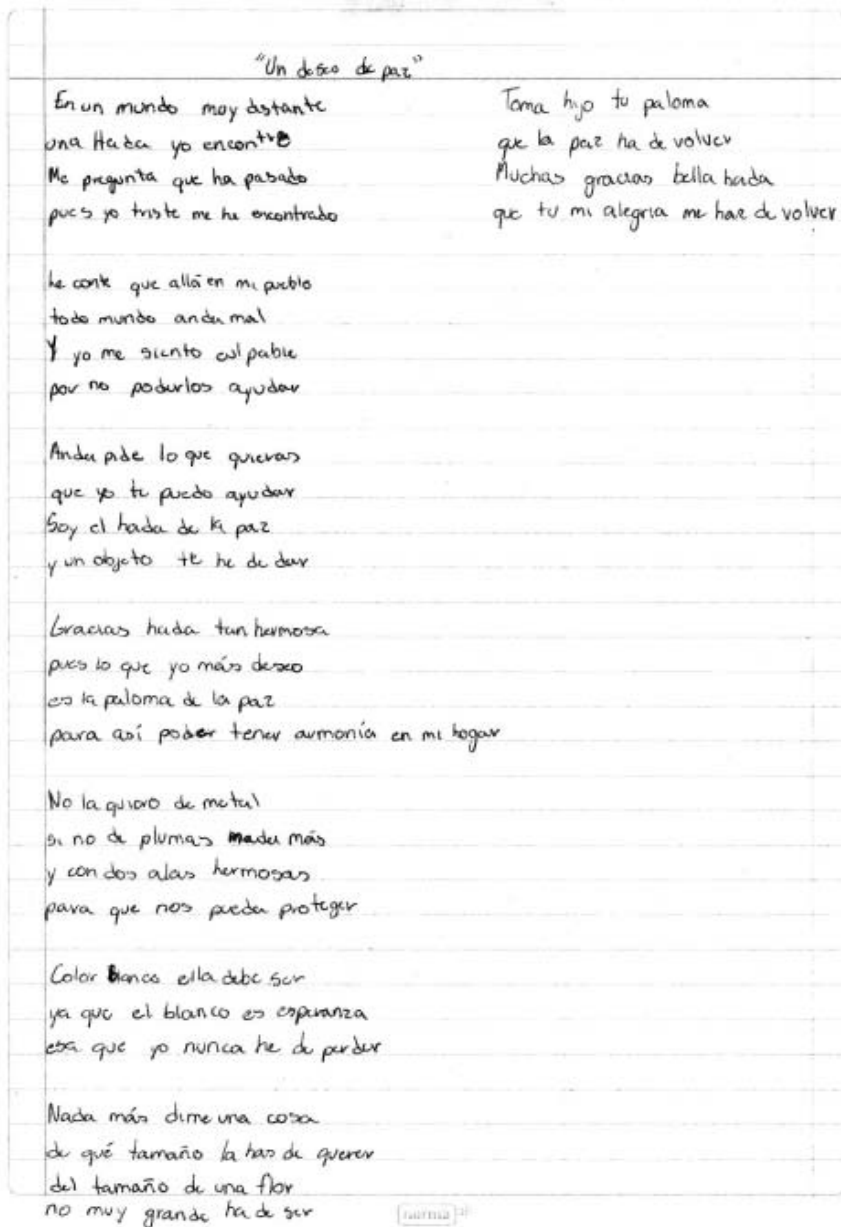 "Un deseo de paz"
En un mundo muy distante
una Hada yo encontre
Me pregunta que ha pasado
pues yo triste me he encontrado
Le conte que allá en mi pueblo
todo mundo anda mal
Y yo me siento culpable
por no poderlos ayudar
Anda pide lo que quieras
que yo te puedo ayudar
Soy el hada de la paz
y un objeto te he de dar
Gracias hada tan hermosa
pues lo que yo más deseo
es la paloma de la paz
para así poder tener armonía en mi hogar
No la quiero de metal
si no de plumas nada más
y con dos alas hermosas
para que nos pueda proteger
Color blanco ella debe ser
ya que el blanco es esperanza
esa que yo nunca he de perder
Nada más dime una cosa
de qué tamaño la has de querer
del tamaño de una flor
no muy grande ha de ser
Toma hijo tu paloma
que la paz ha de volver
Muchas gracias bella hada
que tu mi alegria me haz de volver
norma